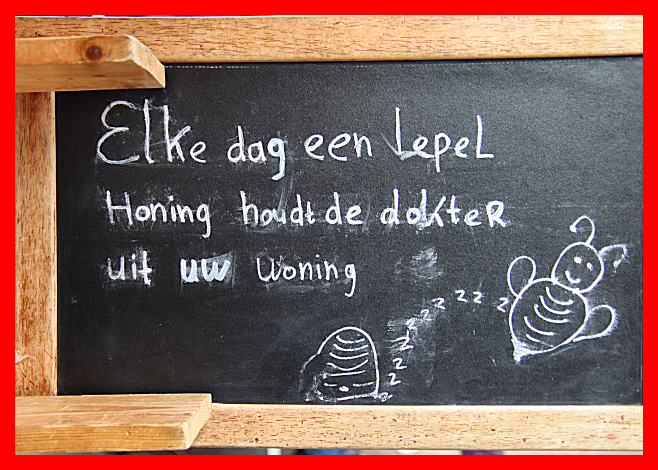 Elke dag een lepel
Honing houdt de dokter
uit uw woning
zzzzzzzzzz